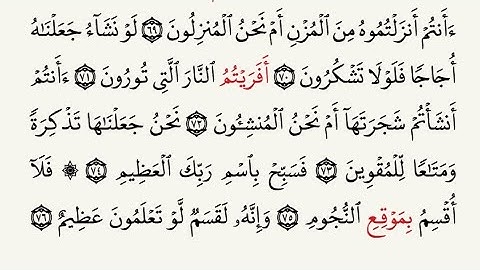 ءَأَنتُمۡ أَنزَلۡتُمُوهُ مِنَ ٱلۡمُزۡنِ أَمۡ نَحۡنُ ٱلۡمُنزِلُونَ ٦٩ لَوۡ نَشَآءُ جَعَلۡنَٰهُ
أُجَاجٗا فَلَوۡلَا تَشۡكُرُونَ ٧٠ أَفَرَيۡتُمُ ٱلنَّارَ ٱلَّتِي تُورُونَ ٧١ ءَأَنتُمۡ
أَنشَأۡتُمۡ شَجَرَتَهَآ أَمۡ نَحۡنُ ٱلۡمُنشِـُٔونَ ٧٢ نَحۡنُ جَعَلۡنَٰهَا تَذۡكِرَةٗ
وَمَتَٰعٗا لِّلۡمُقۡوِينَ ٧٣ فَسَبِّحۡ بِٱسۡمِ رَبِّكَ ٱلۡعَظِيمِ ٧٤ ۞ فَلَآ
أُقۡسِمُ بِمَوۡقِعِ ٱلنُّجُومِ ٧٥ وَإِنَّهُۥ لَقَسَمٞ لَّوۡ تَعۡلَمُونَ عَظِيمٌ ٧٦